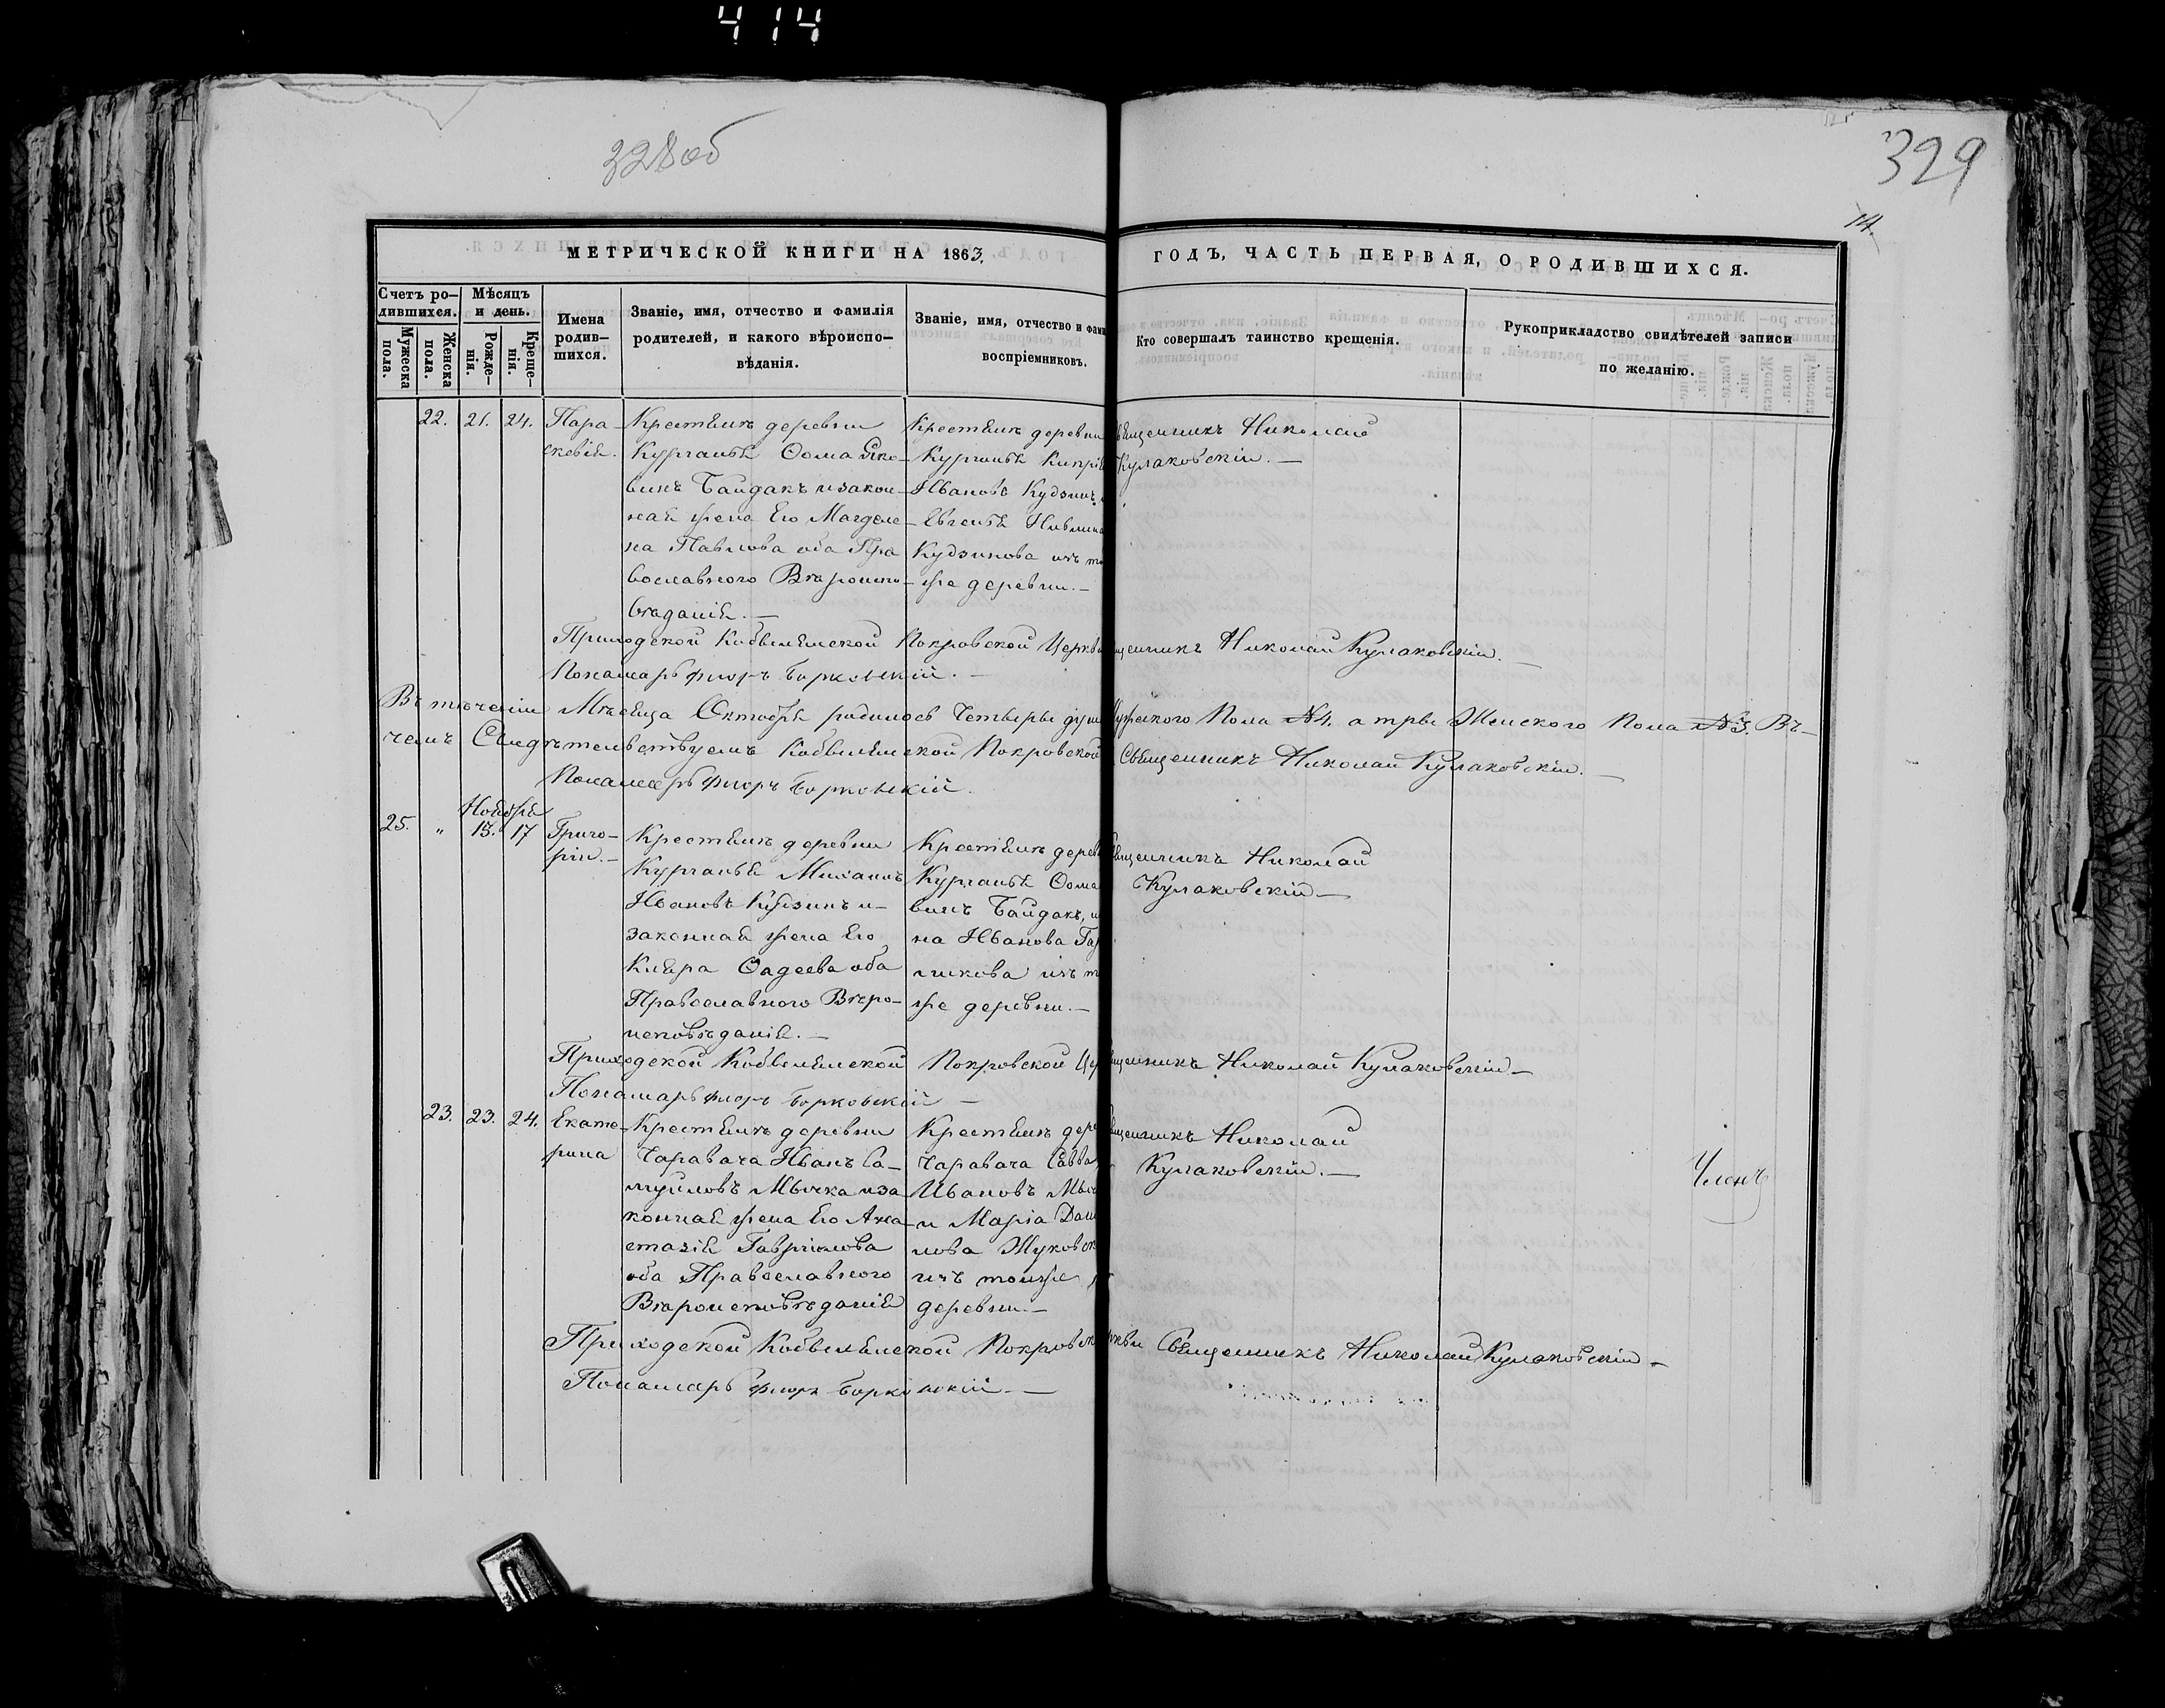 414
328об
329
14.
МЕТРИЧЕСКОЙ КНИГИ НА 1863.
ГОДЪ, ЧАСТЬ ПЕРВАЯ, О РОДИВШИХСЯ.
Счетъ ро-
дившихся.
Мужеска пола.
Женска пола.
Мѣсяцъ
и день.
Рожде-
нія.
Креще-
нія.
Имена
родив-
шихся.
Званіе, имя, отчество и фамилія
родителей, и какого вѣроиспо-
вѣданія.
Званіе, имя, отчество и фами
воспріемниковъ.
Кто совершалъ таинство крещенія.
Рукоприкладство свидѣтелей записи
по желанію.
22. 21. 24.
Пара-
скевія.
Крестьянъ деревни
Курганья Ѳома Яко-
винъ Байдакъ и закон-
ная жена Его Магдале-
на Павлова оба Пра
вославного Вѣроиспо-
вѣданія.
Крестьянъ деревни
Курганья Кипрія
Ивановъ Кудзинъ
Кудзинова изъ т
же деревни.
Священникъ Николай
Кулаковскій.
Приходской Кобыльянской Покровской Церкви Священникъ Николай Кулаковскій.
Понамарь Флоръ Борковскій.
Въ теченіи Мѣсяца Октобря родилось Четыры душ Мужеского Пола №4. а тры Женского Пола №3. Въ
чемъ Свидѣтельствуемъ Кобыльянской Покровской Священникъ Николай Кулаковскій.
Понамарь Флоръ Борковскій.
Ноября
25. " 13. 17
Григо-
рій.
Крестьянъ деревни
Курганья Михаилъ
Ивановъ Кудзинъ и
законная жена Его
Клара Ѳадеева оба
Православного Вѣро-
исповѣданія.
Крестьянъ дерев
Курганья Ѳома
винъ Байдакъ, и
на Иванова Га
никова изъ т
же деревни.
Священникъ Николай
Кулаковскій
Приходской Кобыльянской Покровской Це Священникъ Николай Кулаковскій
Понамарь Флоръ Борковскій
23. 23. 24.
Екате-
рина
Крестьянъ деревни
Чаравача Иванъ Са-
муйловъ Мычка и за
конная жена Его Ана-
стазія Гавріилова
оба Православного
Вѣроисповѣданія
Крестьянъ дере
Чаравача Савва
Ивановъ Мыч
и Марія Дани
лова Жуковск
изъ тоиже
деревни.
Священникъ Николай
Кулаковскій.
Членъ
Приходской Кобыльянской Покровск ркви Священникъ Николай Кулаковскій
Понамарь Флоръ Борковскій